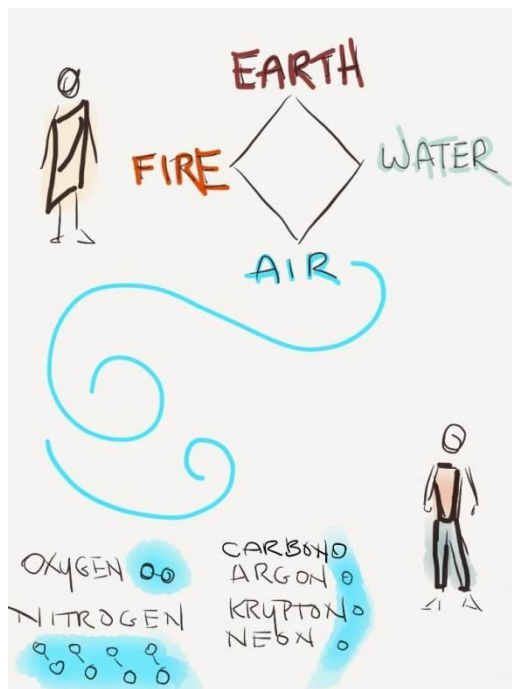 EARTH
FIRE
WATER
AIR
OXYGEN
NITROGEN
CARBONO
ARGON
KRYPTON
NEON